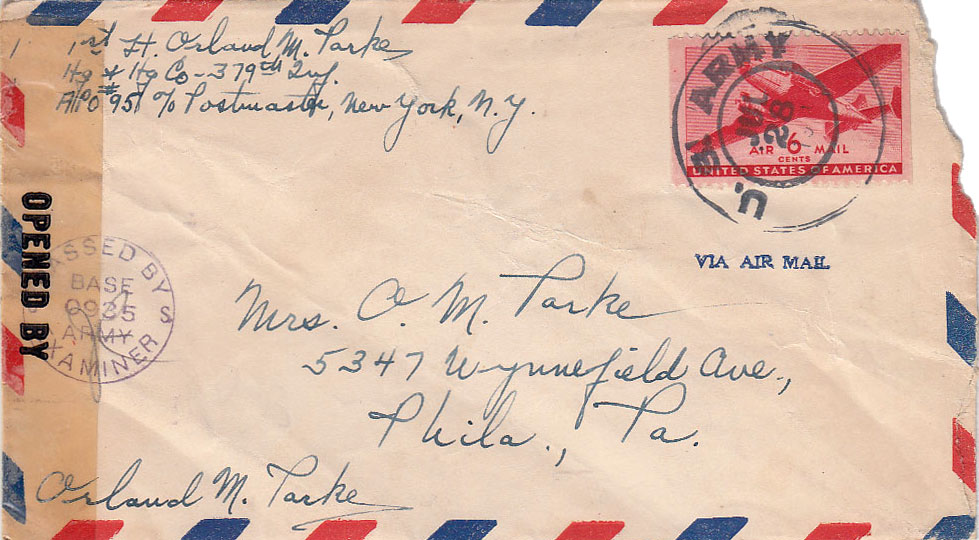 1st Lt. Orland M. Parke
Hq & Hq Co - 379th Inf.
APO #95 c/o Postmaster, New York, N.Y.
U.S. ARMY
JUL
28
AIR 6 MAIL
CENTS
UNITED STATES OF AMERICA
VIA AIR MAIL
OPENED BY
PASSED BY
BASE
ARMY
EXAMINER
S
Mrs. O. M. Parke
5347 Wynnefield Ave.,
Phila., Pa.
Orland M. Parke